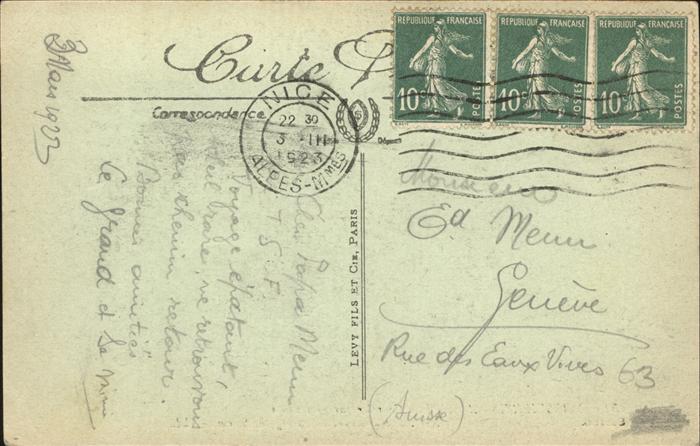 Carte P
Correspondance
REPUBLIQUE FRANÇAISE
10c POSTES
REPUBLIQUE FRANÇAISE
10c POSTES
REPUBLIQUE FRANÇAISE
10c POSTES
NICE
22 30
3 - III
1923
ALPES-Mmes
3 Mars 1923
Cher Papa Menn
T S F.
Voyage épatant,
soleil rare, ne retrouvons
pas chemin retour.
Bonnes amitiés
Le grand et le mimi
LEVY FILS ET CIE, PARIS
Monsieur
Ed Menn
Genève
Rue des Eaux Vives 63
(Suisse)